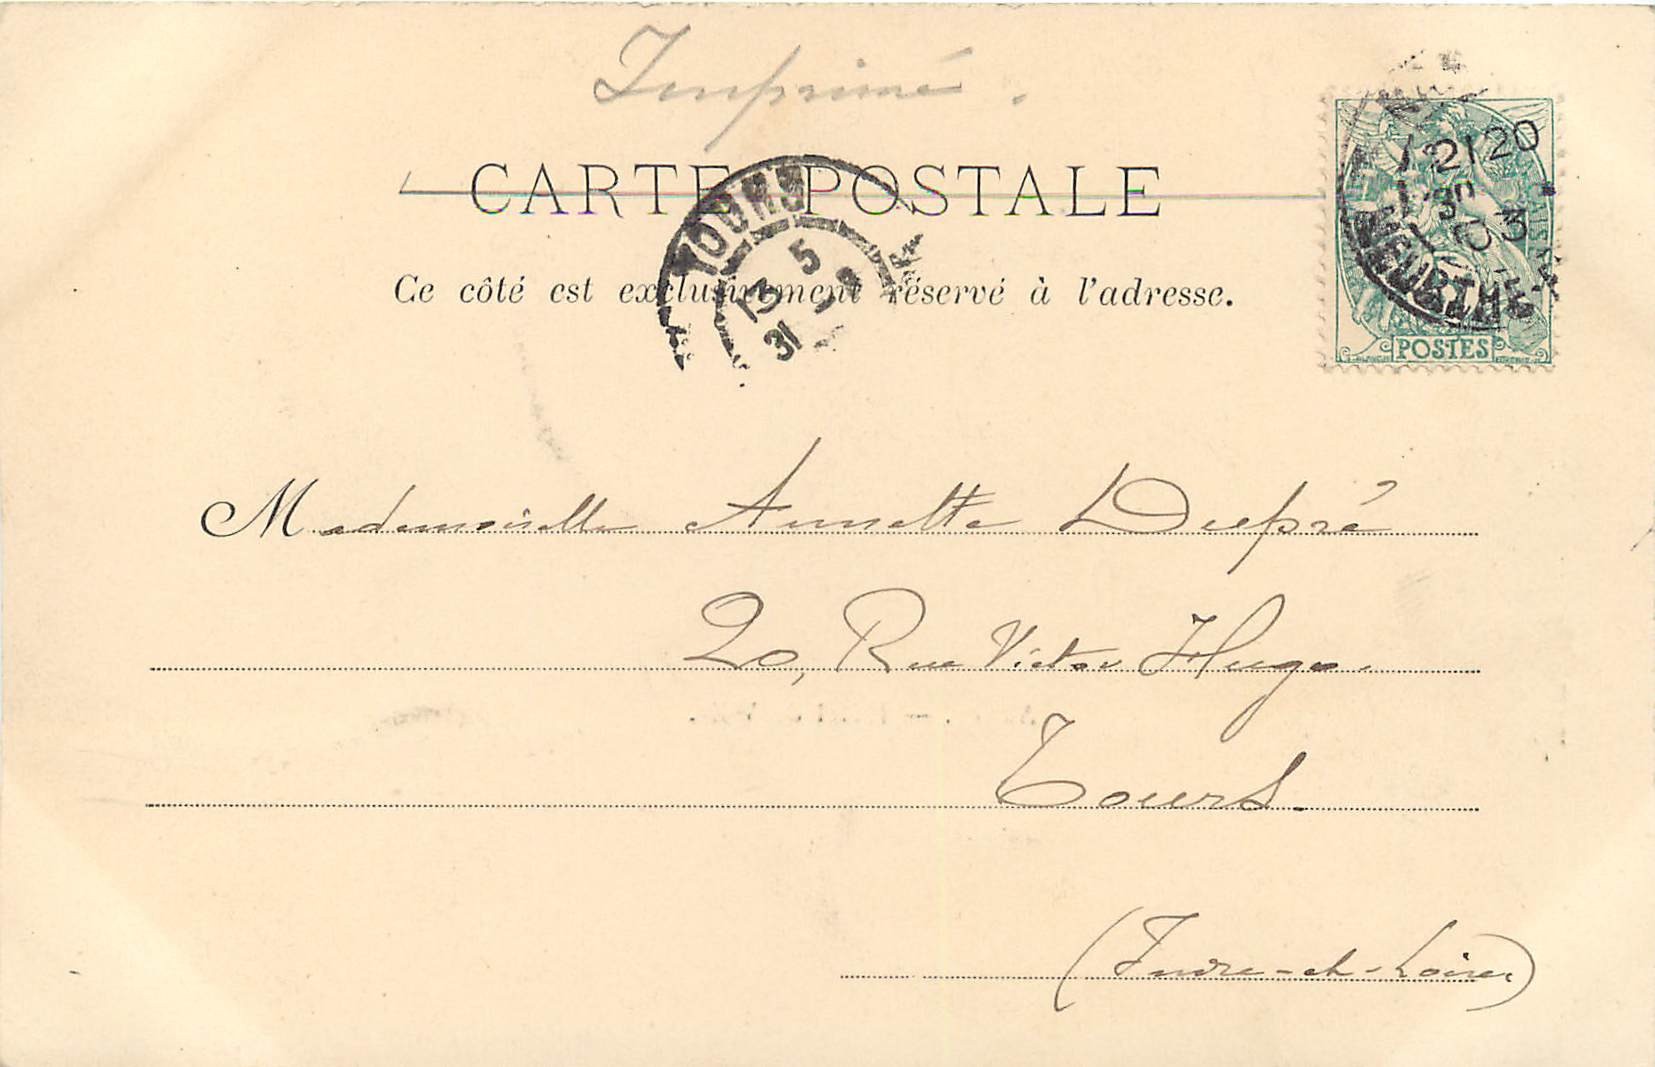 Imprimé.
CARTE POSTALE
Ce côté est exclusivement réservé à l'adresse.
TOURS
13 5
31
21 20
3
POSTES
Mademoiselle Annette Dupré
20, Rue Victor Hugo.
Tours.
(Indre-et-Loire)